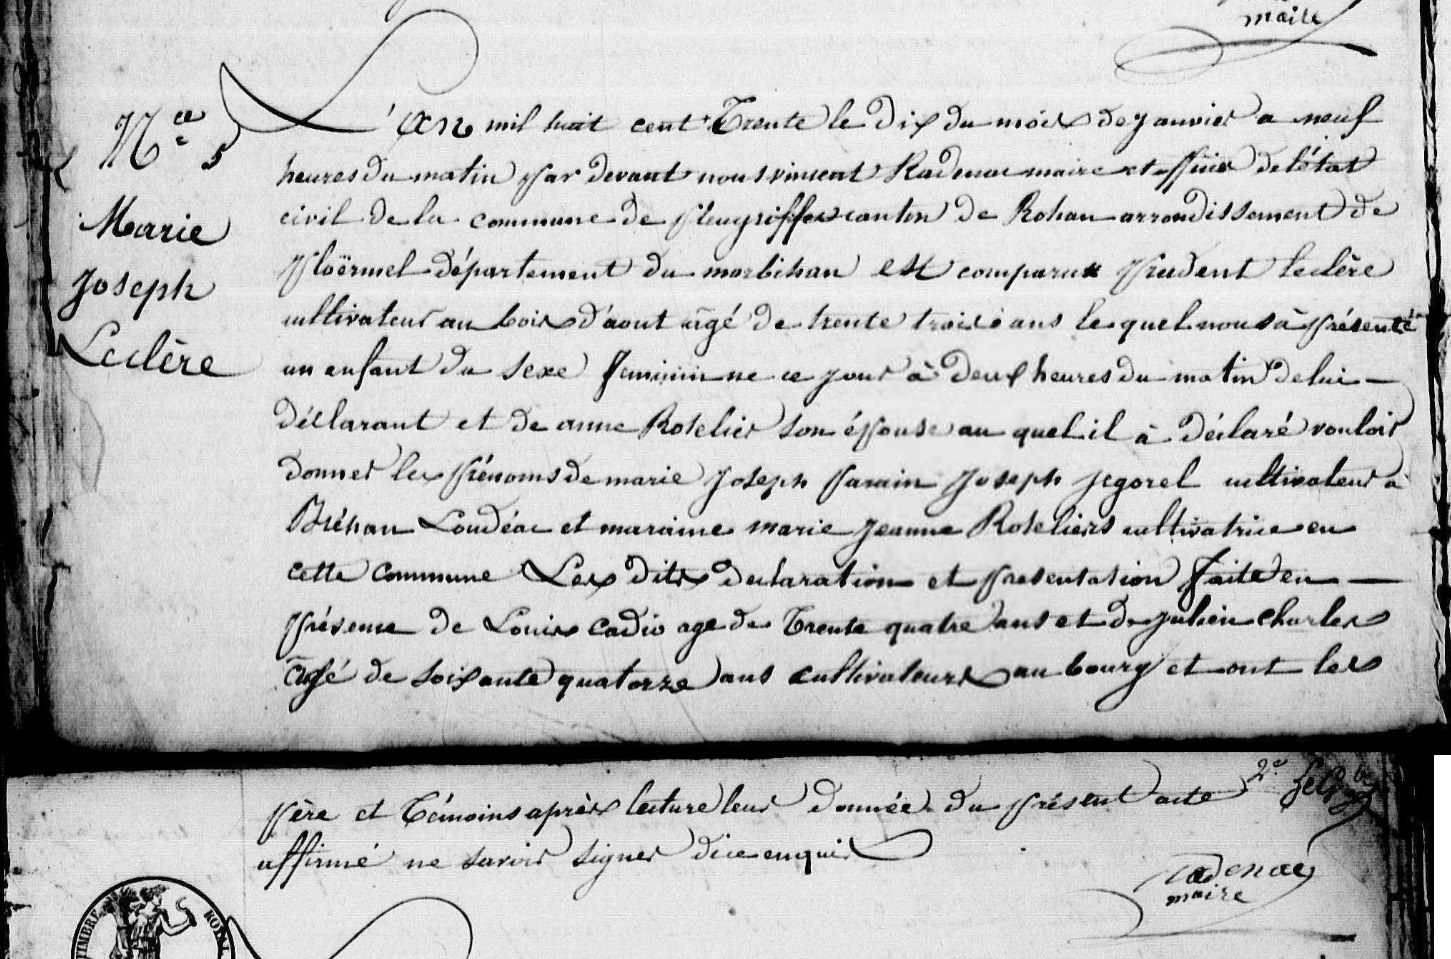 maire
Nce 5
Marie
Joseph
Leclère
L'an mil huit cent Trente le dix du mois de janvier a neuf
heures du matin par devant nous vincent Kadenac maire et officier de l'état
civil de la commune de pleugriffet canton de Rohan arrondissement de
ploërmel département du morbihan est comparu prudent leclère
cultivateur au bois d'aout âgé de trente trois ans le quel nous à présenté
un enfant du sexe feminin ne ce jour à deux heures du matin de lui
déclarant et de anne Roselier son épouse au quel il à déclaré vouloir
donner les prénoms de marie joseph parain joseph jegorel cultivateur à
Bréhan Loudéac et maraine marie jeanne Roseliers cultivatrice en
cette commune Les dites declaration et presentasion faite en
présence de Louis cadio age de Trente quatre ans et de julien charles
âgé de soixante quatorze ans cultivateurs au bourg et ont les
père et Témoins après lecture leur donnée du présent acte
affirmé ne savoir signer dice enquis
2e
Cadenac
maire
TIMBRE ROYAL